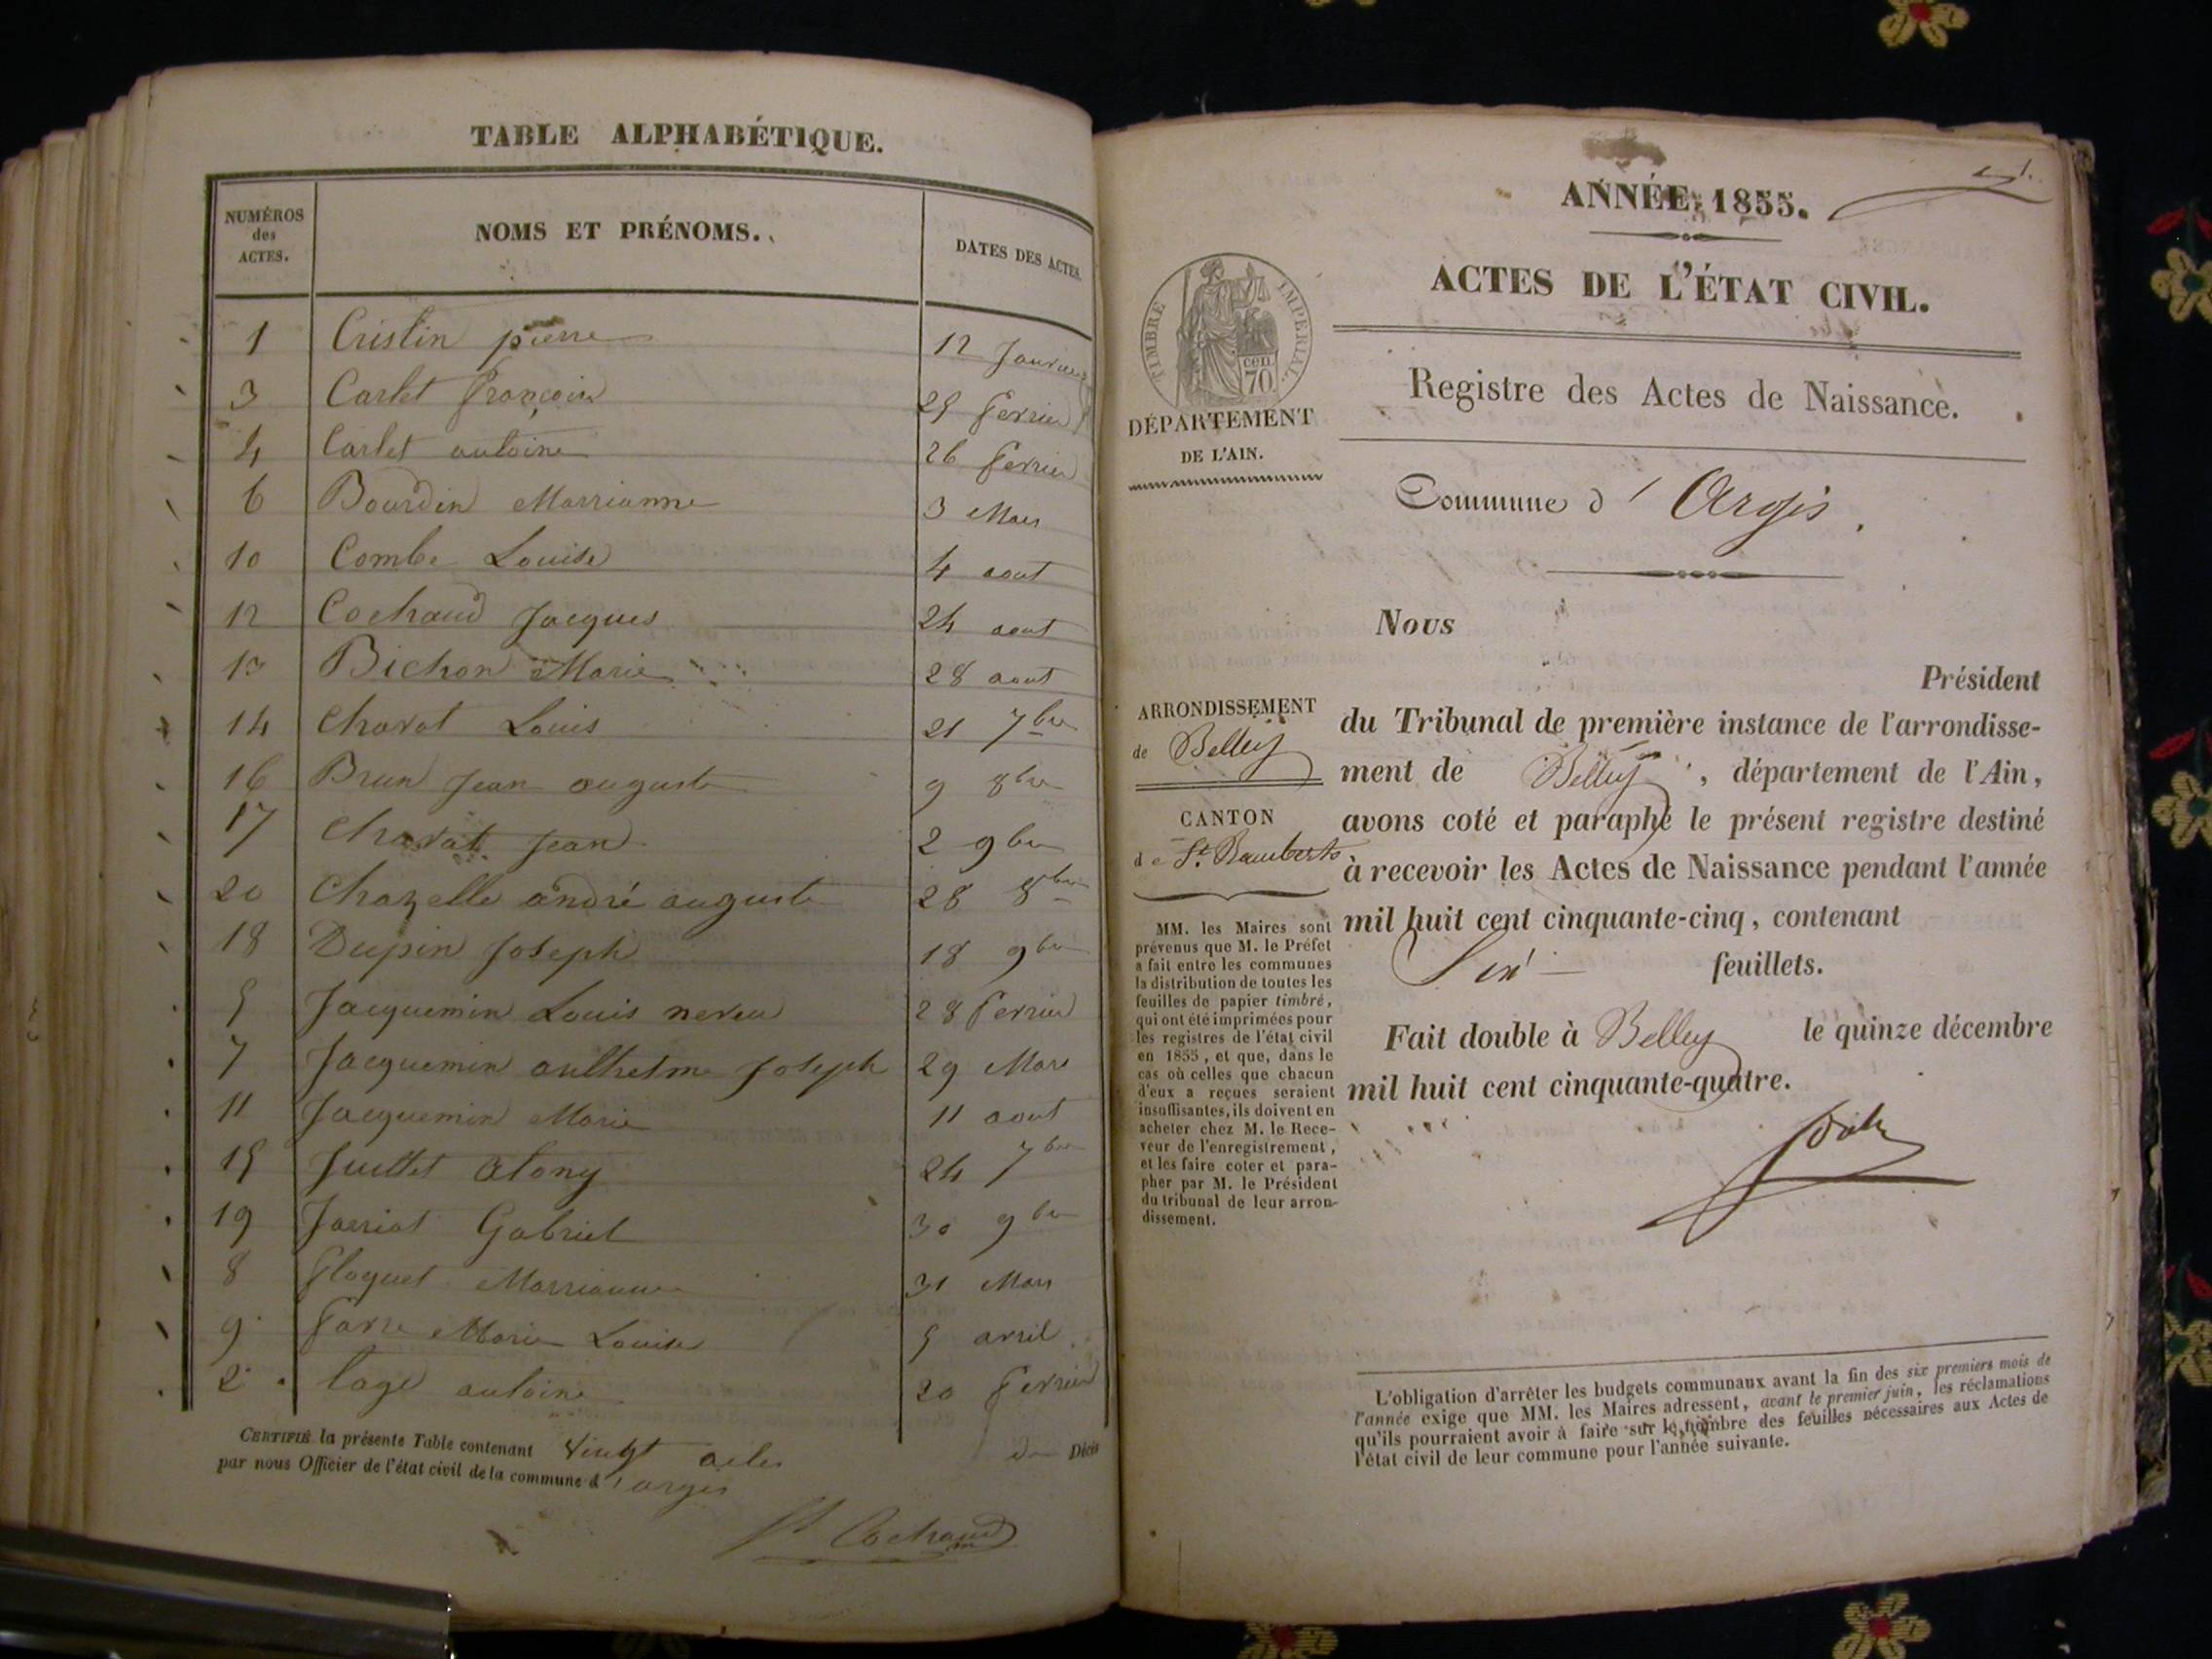 TABLE ALPHABÉTIQUE.
NUMÉROS
des
ACTES.
NOMS ET PRÉNOMS.
DATES DES ACTES.
1 Cristin pierre 12 Janvier
3 Carlet françois 25 fevrier
4 Carlet antoine 26 fevrier
6 Bourdin Marrianne 3 Mars
10 Combe Louise 4 aout
12 Cochaud Jacques 24 aout
13 Bichon Marie 28 aout
14 Chavat Louis 21 7bre
16 Brun Jean auguste 9 8bre
17 Chavat Jean 2 9bre
20 Chazelle andré auguste 28 8bre
18 Dupin Joseph 18 9bre
5 Jacquemin Louis neveu 28 fevrier
7 Jacquemin anthelme Joseph 29 Mars
11 Jacquemin Marie 11 aout
15 Juillet 24 7bre
19 Jarriat Gabriel 30 9bre
8 floquet Marrianne 31 Mars
9 favre Marie Louise 5 avril
2 Lage antoine 20 fevrier
CERTIFIÉ la présente Table contenant vingt actes de Décès
par nous Officier de l'état civil de la commune d'argis
Cochaud
ANNÉE 1855.
ACTES DE L'ÉTAT CIVIL.
TIMBRE IMPÉRIAL.
cen.
70
DÉPARTEMENT
DE L'AIN.
Registre des Actes de Naissance.
Commune d'Argis.
Nous
Président
ARRONDISSEMENT
de Belley
CANTON
de St. Rambert
du Tribunal de première instance de l'arrondisse-
ment de Belley, département de l'Ain,
avons coté et paraphé le présent registre destiné
à recevoir les Actes de Naissance pendant l'année
mil huit cent cinquante-cinq, contenant
Six feuillets.
Fait double à Belley le quinze décembre
mil huit cent cinquante-quatre.
MM. les Maires sont
prévenus que M. le Préfet
a fait entre les communes
la distribution de toutes les
feuilles de papier timbré,
qui ont été imprimées pour
les registres de l'état civil
en 1855, et que, dans le
cas où celles que chacun
d'eux a reçues seraient
insuffisantes, ils doivent en
acheter chez M. le Rece-
veur de l'enregistrement,
et les faire coter et para-
pher par M. le Président
du tribunal de leur arron-
dissement.
L'obligation d'arrêter les budgets communaux avant la fin des six premiers mois de
l'année exige que MM. les Maires adressent, avant le premier juin, les réclamations
qu'ils pourraient avoir à faire sur le nombre des feuilles nécessaires aux Actes de
l'état civil de leur commune pour l'année suivante.